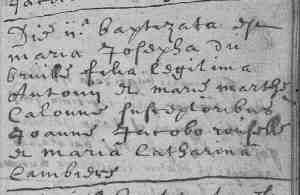 Die ij.ª baptizata est
maria Josepha du
bruille filia legitima
Antonij et marie marthe
Caloune susceptoribus
Joanne Jacobo roufselle
et maria Catharina
Cambiere